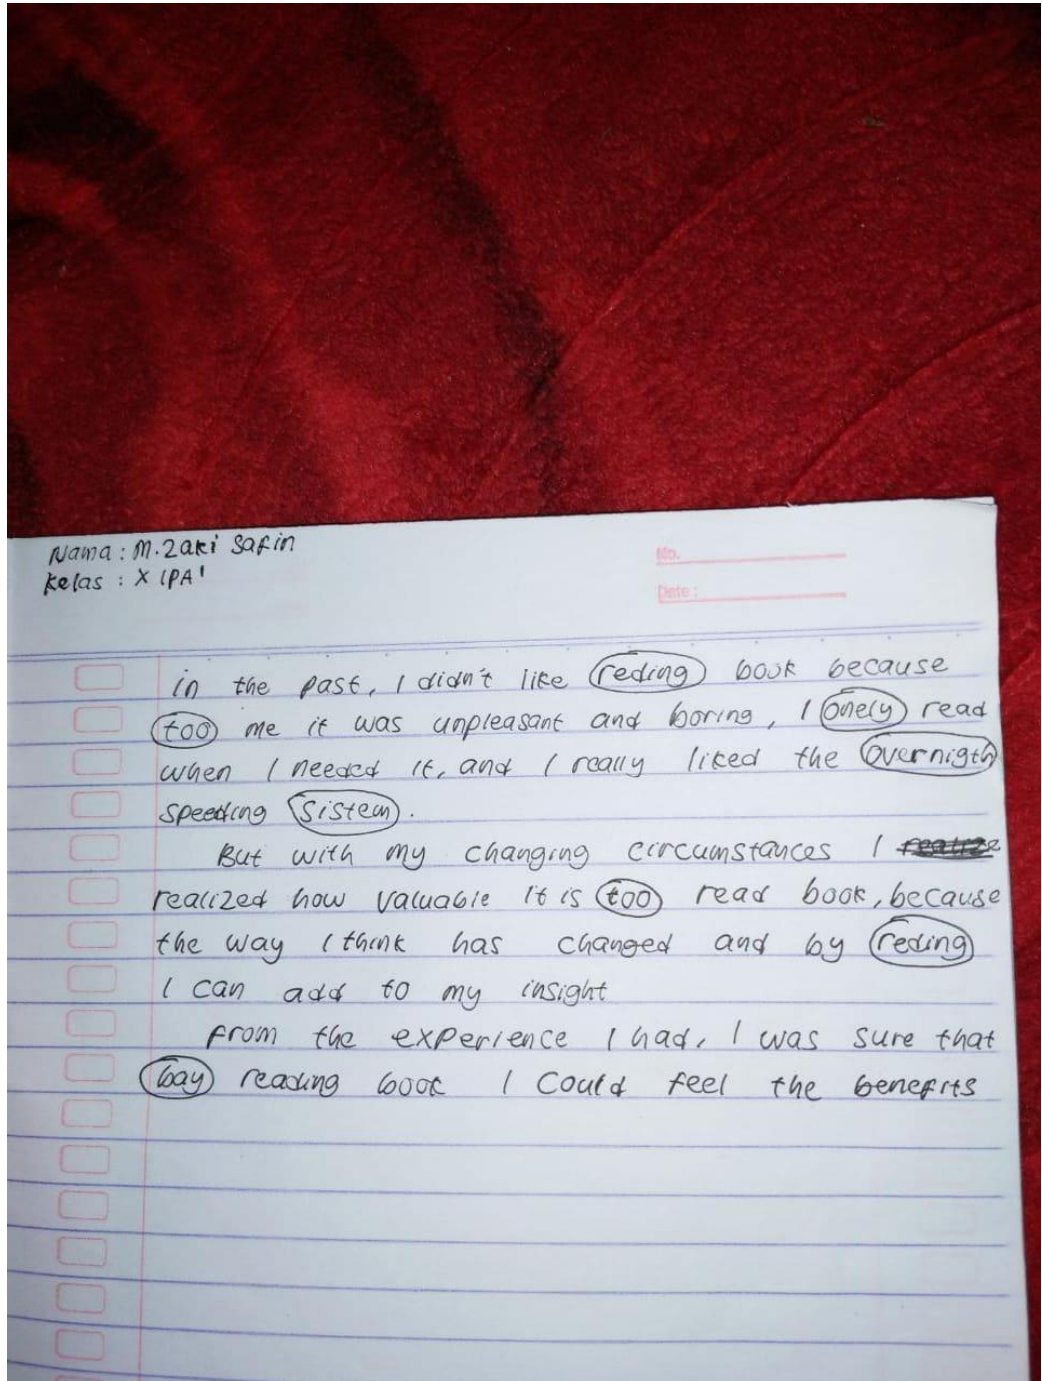 Nama : M. Zaki Safin
Kelas : X IPA 1
No.
Date :
in the past, I didn't like reding book because
too me it was unpleasant and boring, I onely read
when I needed it, and I really liked the overnigth
speeding sistem.
But with my changing circumstances I realize
realized how valuable it is too read book, because
the way I think has changed and by reding
I can add to my insight
From the experience I had, I was sure that
bay reading book I could feel the benefits